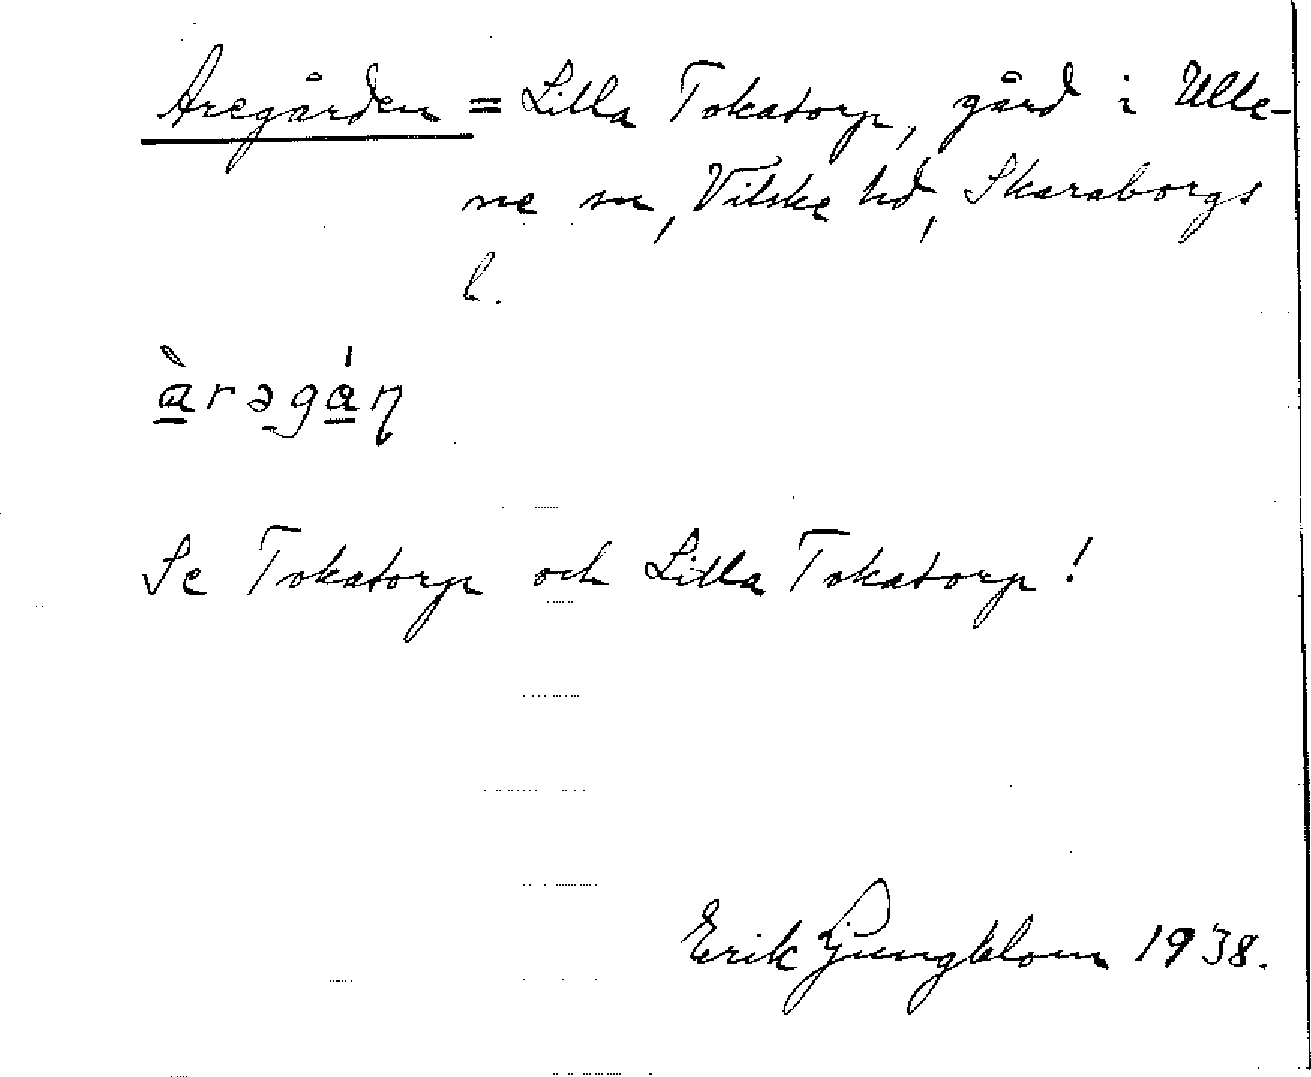 Aregården = Lilla Tokatorp, gård i Ulle-
ne sn, Vilske hd, Skaraborgs
l.
à̲rəgá̲ɳ
Se Tokatorp och Lilla Tokatorp!
Erik Ljungblom 1938.